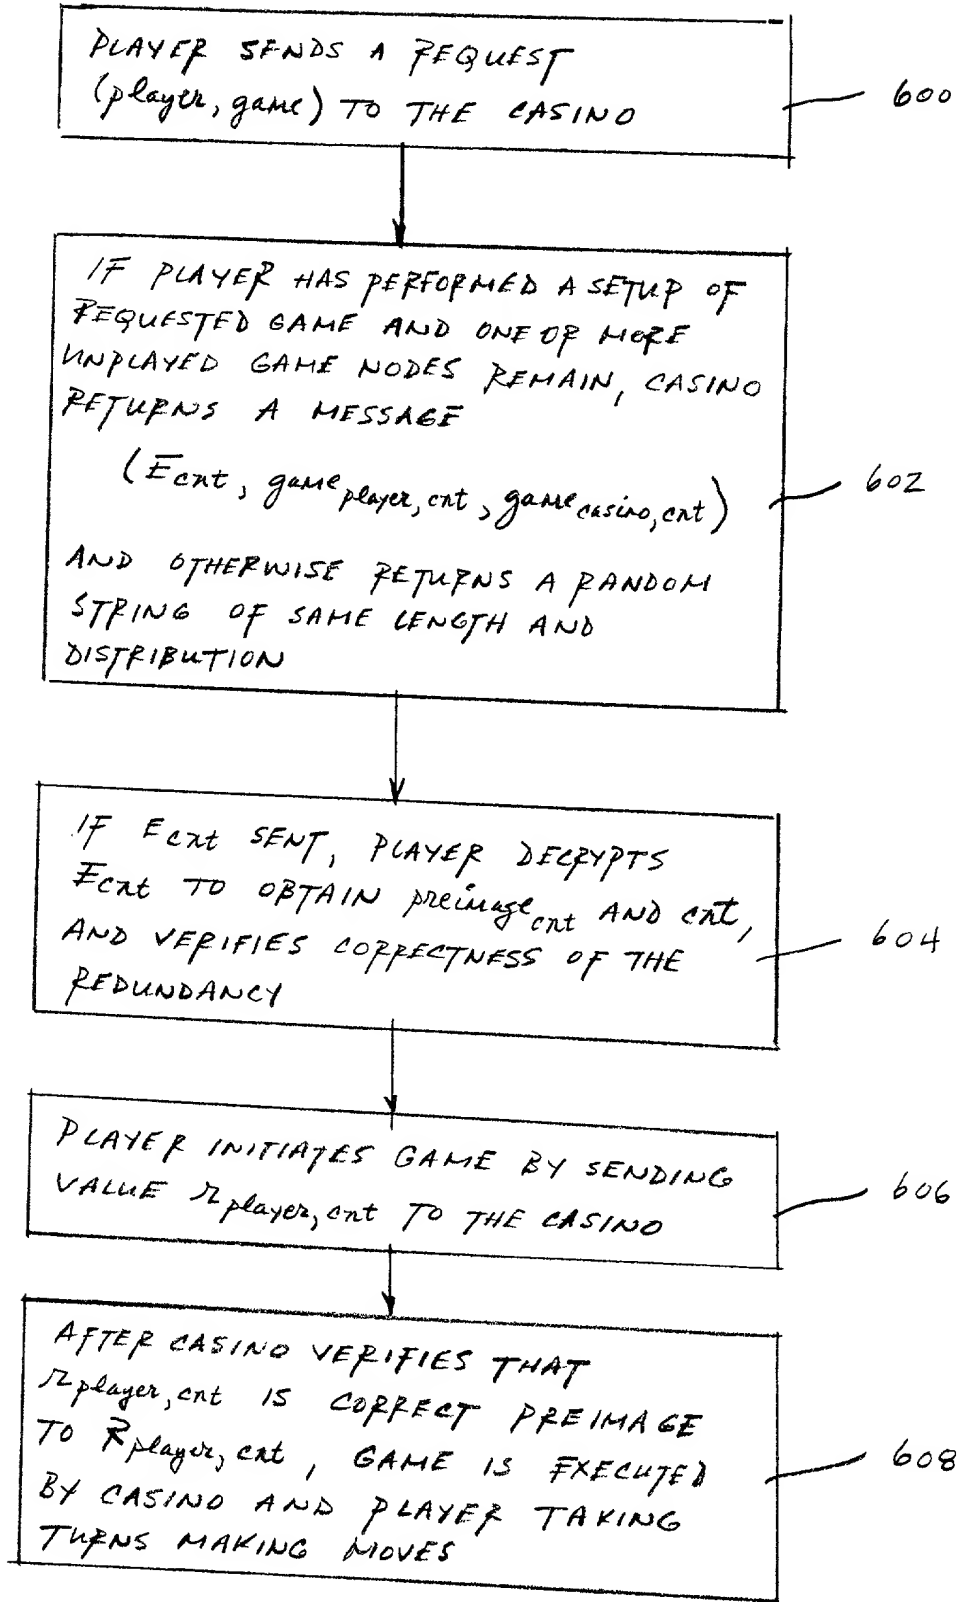 PLAYER SENDS A REQUEST
(player, game) TO THE CASINO
600
IF PLAYER HAS PERFORMED A SETUP OF
REQUESTED GAME AND ONE OR MORE
UNPLAYED GAME NODES REMAIN, CASINO
RETURNS A MESSAGE
(Ecnt, game player, cnt, game casino, cnt)
602
AND OTHERWISE RETURNS A RANDOM
STRING OF SAME LENGTH AND
DISTRIBUTION
IF Ecnt SENT, PLAYER DECRYPTS
Ecnt TO OBTAIN preimage cnt AND cnt,
AND VERIFIES CORRECTNESS OF THE
REDUNDANCY
604
PLAYER INITIATES GAME BY SENDING
VALUE r player, cnt TO THE CASINO
606
AFTER CASINO VERIFIES THAT
r player, cnt IS CORRECT PREIMAGE
TO R player, cnt, GAME IS EXECUTED
BY CASINO AND PLAYER TAKING
TURNS MAKING MOVES
608